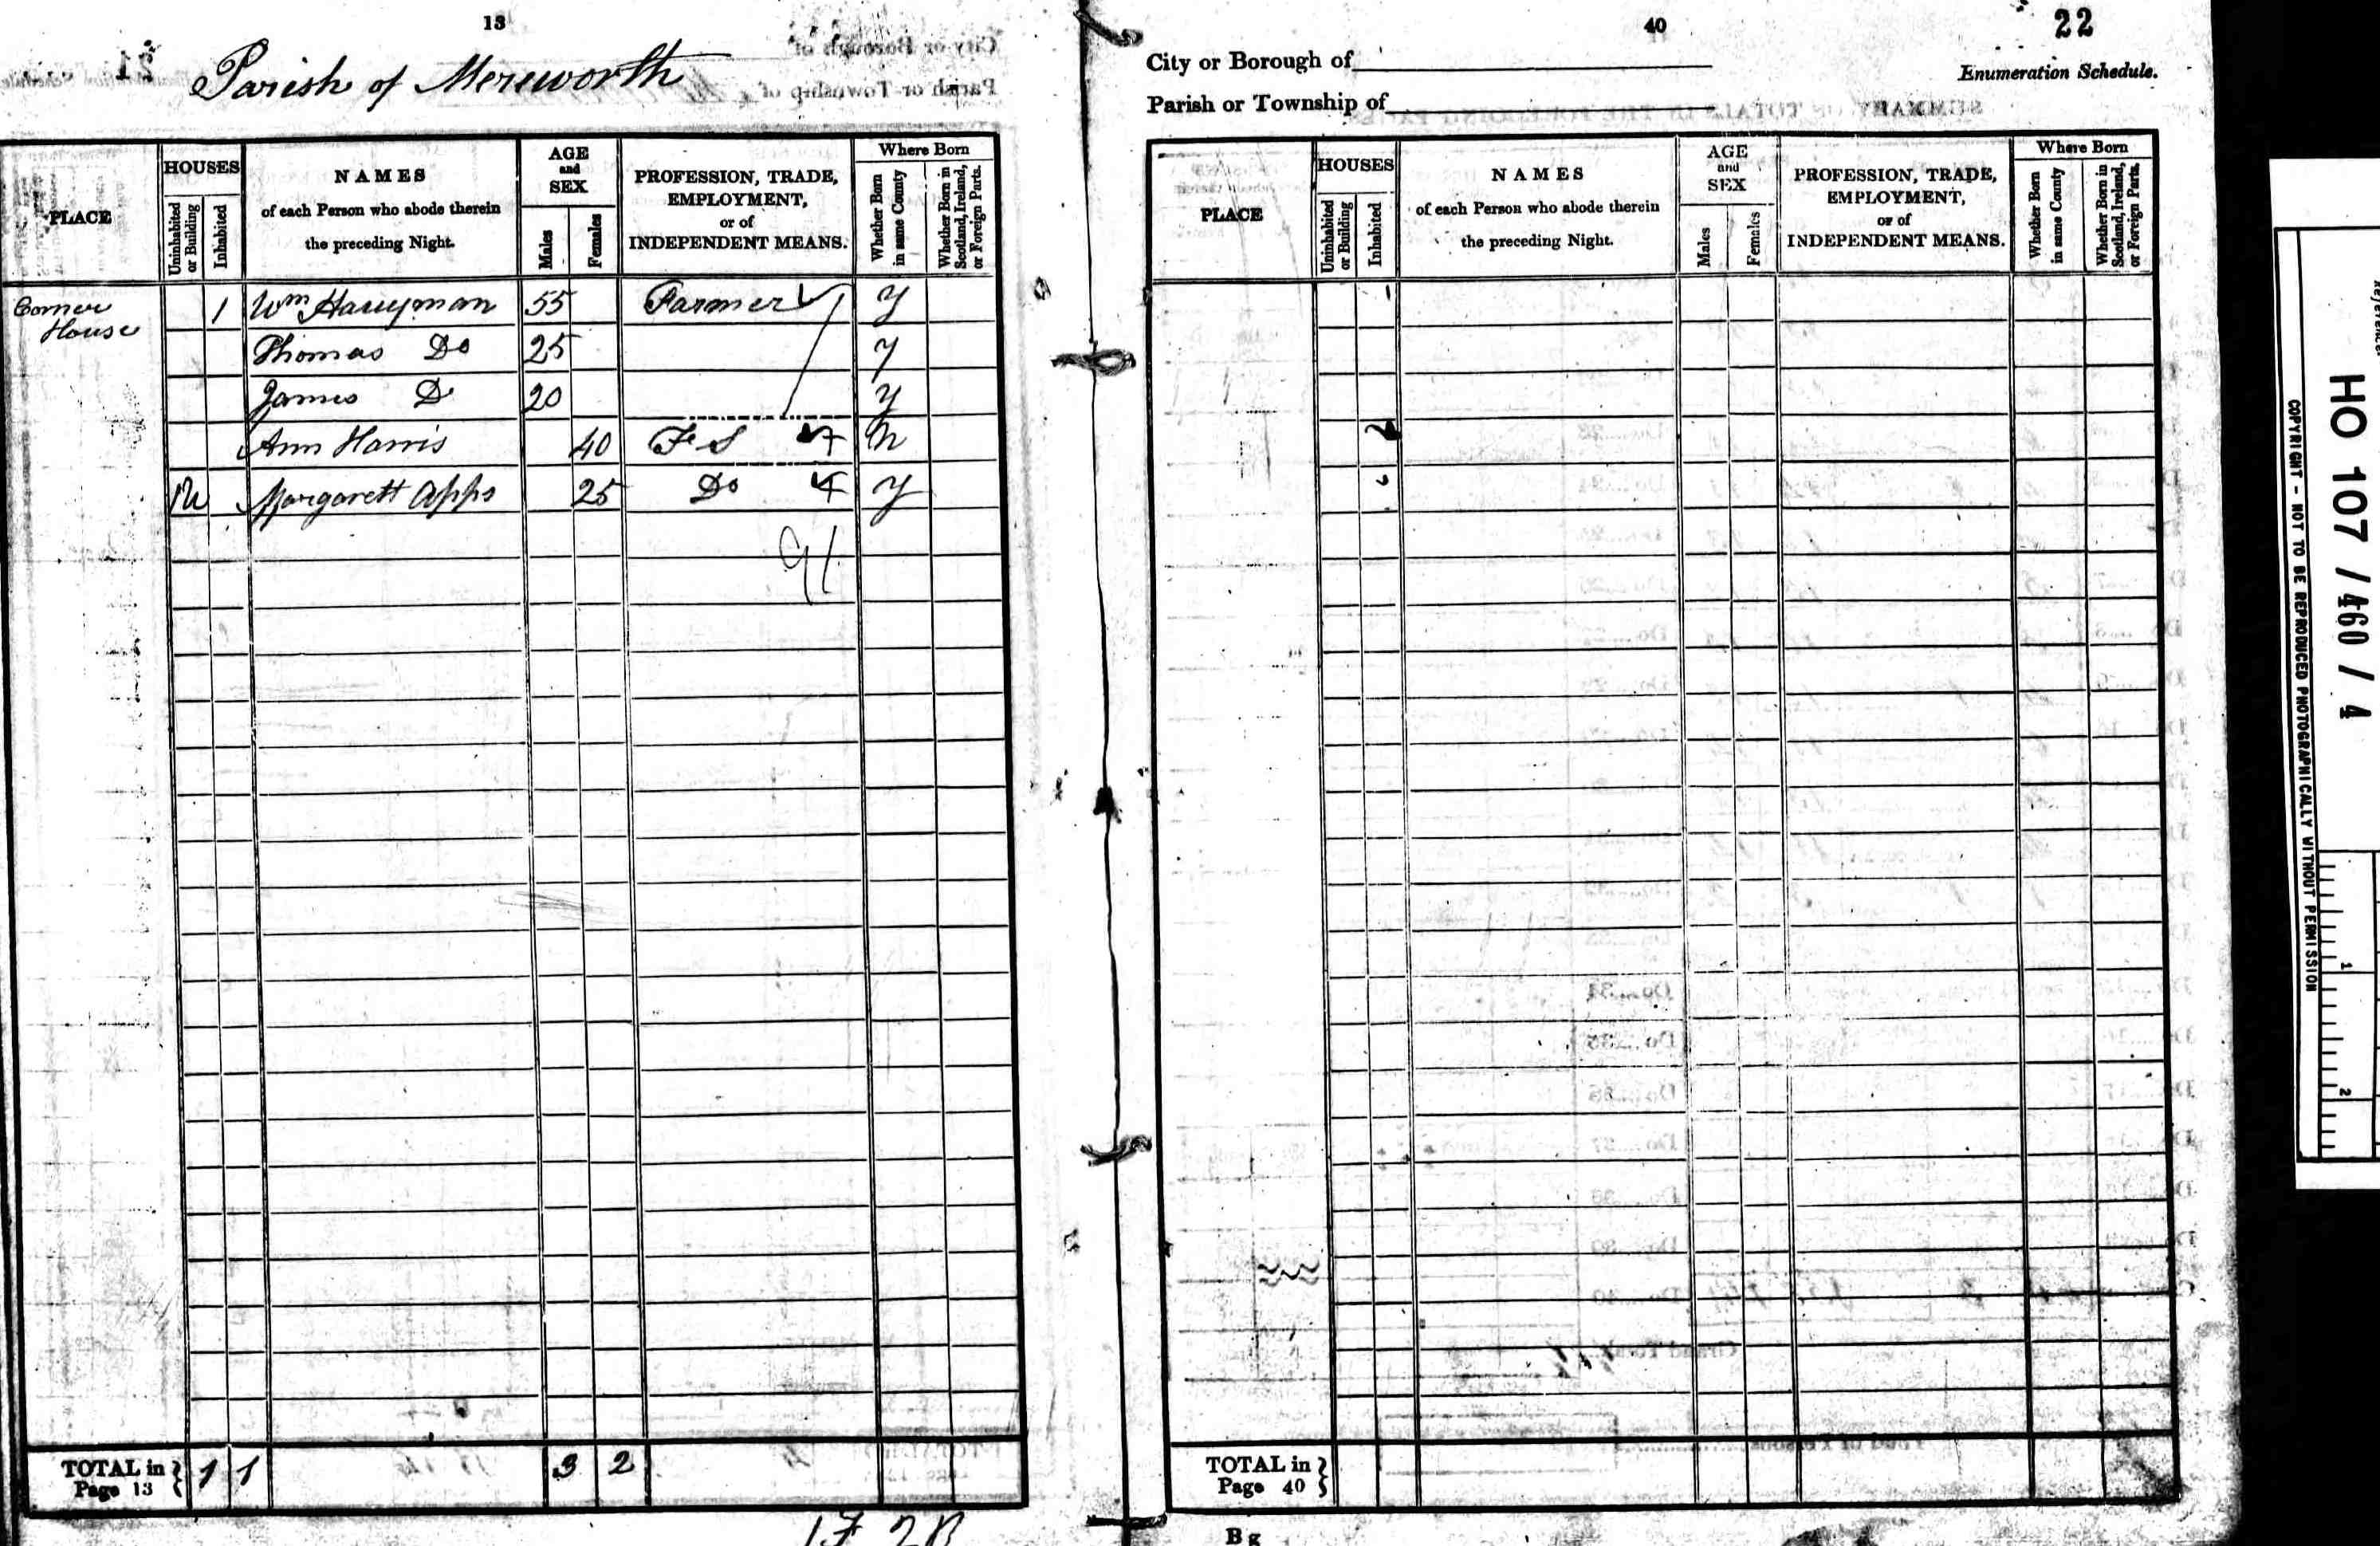 13
Parish of Mereworth
PLACE
HOUSES
Uninhabited or Building
Inhabited
NAMES
of each Person who abode therein
the preceding Night.
AGE
and
SEX
Males
Females
PROFESSION, TRADE,
EMPLOYMENT,
or of
INDEPENDENT MEANS.
Where Born
Whether Born in same County
Whether Born in Scotland, Ireland, or Foreign Parts.
Corner House 1 Wm 55 Farmer y
Thomas Do 25 y
James Do 20 y
Ann Harris 40 F S N
1U Margarett Apps 25 Do y
TOTAL in Page 13 1 1 3 2
40
22
City or Borough of
Enumeration Schedule.
Parish or Township of
PLACE
HOUSES
Uninhabited or Building
Inhabited
NAMES
of each Person who abode therein
the preceding Night.
AGE
and
SEX
Males
Females
PROFESSION, TRADE,
EMPLOYMENT,
or of
INDEPENDENT MEANS.
Where Born
Whether Born in same County
Whether Born in Scotland, Ireland, or Foreign Parts.
TOTAL in Page 40
B g
HO 107 / 460 / 4
COPYRIGHT - NOT TO BE REPRODUCED PHOTOGRAPHICALLY WITHOUT PERMISSION
1
2